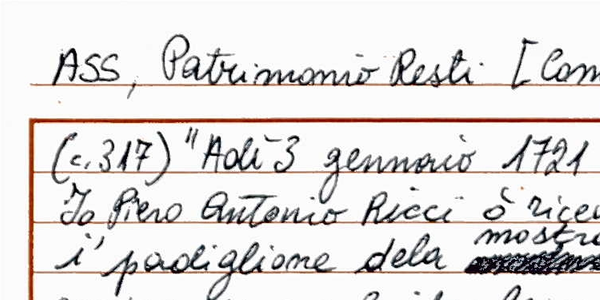 ASS, Patrimonio Resti [Com
(c. 317) "Adì 3 gennaio 1721
Io Piero Antonio Ricci ò rice
mostra
i' padiglione dela